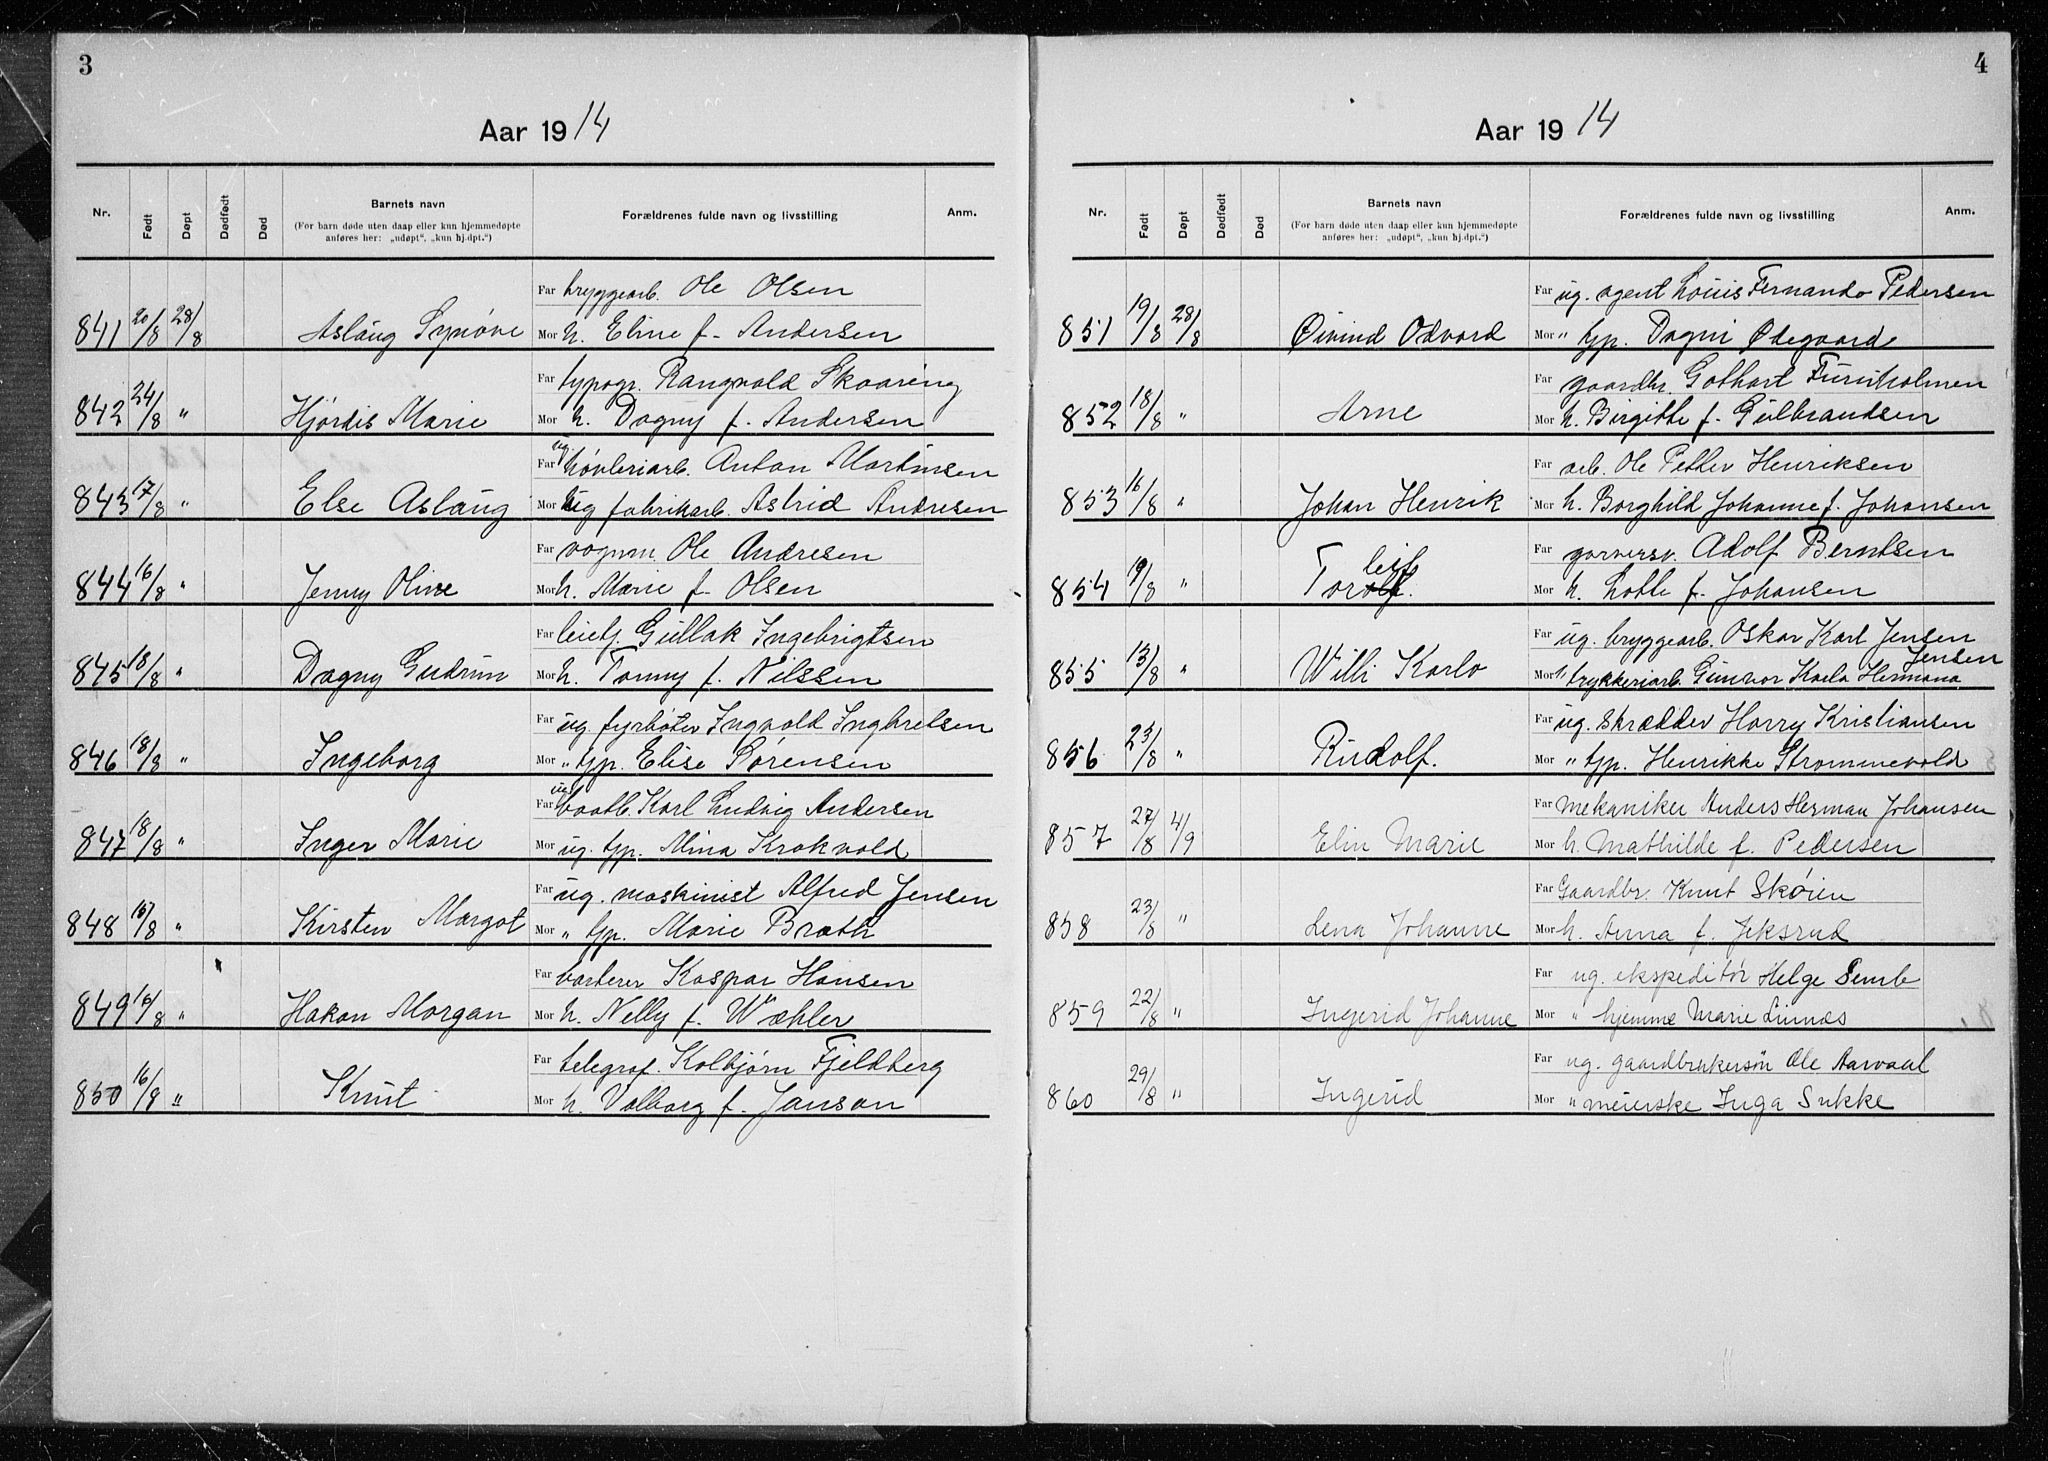 3
Aar 1914
Nr. Født Døpt Dødfødt Død Barnets navn Forældrenes fulde navn og livsstilling Anm.
(For barn døde uten daap eller kun hjemmedøpte
anføres her: „udøpt", „kun hj.dpt.")
Far bryggearb. Ole Olsen
841 20/8 28/8 Aslaug Synøve Mor h. Eline f. Andersen
Far typogr. Rangvald Skaaring
842 24/8 " Hjørdis Marie Mor h. Dagny f. Andersen
Far ug høvleriarb. Anton Martinsen
843 17/8 " Else Aslaug Mor ug fabrikarb. Astrid Andresen
Far vognm. Ole Andresen
844 16/8 " Jenny Oline Mor h. Marie f. Olsen
Far leief. Gullak Ingebrigtsen
845 18/8 " Dagny Gudrun Mor h. Tonny f. Nilssen
Far ug. fyrbøter Ingvald Ingbretsen
846 18/8 " Ingeborg Mor " tjp. Elise Sørensen
Far ug baatb. Karl Ludvig Andersen
847 18/8 " Inger Marie Mor ug. tjp. Mina Krokvold
Far ug. maskinist Alfred Jensen
848 /8 " Kirsten Margot Mor " tjp. Marie Braath
Far barberer Kaspar Hansen
849 16/8 " Hakon Morgan Mor h. Nelly f. Wæhler
Far telegraf. Kolbjørn Fjeldberg
850 16/8 " Knut Mor h. Valborg f. Janson
4
Aar 1914
Nr. Født Døpt Dødfødt Død Barnets navn Forældrenes fulde navn og livsstilling Anm.
(For barn døde uten daap eller kun hjemmedøpte
anføres her: „udøpt", „kun hj.dpt.")
Far ug. agent Louis Fernando Pedersen
851 19/8 28/8 Øivind Odvard Mor " tjp. Dagni Ødegaard
Far gaardbr. Gothart Furuholmen
852 18/8 " Arne Mor h. Birgitte f. Gulbrandsen
Far arb. Ole Petter Henriksen
853 16/8 " Johan Henrik Mor h. Borghild Johanne f. Johansen
Far garversv. Adolf Berntsen
leif
854 19/8 " Torolf. Mor h. Lotte f. Johansen
Far ug. bryggearb. Oskar Karl Jensen
Jensen
855 13/8 " Willi Karlo Mor " trykkeriarb. Gunvor Karla Hermana
Far ug. skrædder Harry Kristiansen
856 23/8 " Rudolf. Mor " tjp. Henrikke Strommevold
Far mekaniker Anders Herman Johansen
857 27/8 4/9 Elin Marie Mor h. Mathilde f. Pedersen
Far Gaardbr. Knut Skøien
858 23/8 " Lena Johanne Mor h. Anna f. Jeksrud
Far ug. ekspeditør Helge Semb
859 22/8 " Ingerid Johanne Mor " hjemme Marie Linnæs
Far ug. gaardbrukersøn Ole Aarvaal
860 29/8 " Ingerid Mor " meierske Inga Sukke